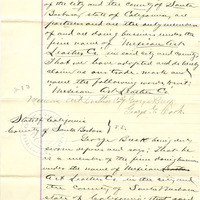 of the city and the county of Santa
Barbara, state of California, are
partners and are the only members
of and are doing business under the
firm name of Mexican Art
Leather Co. in said city and county.
That we have adopted and do hereby
as our trade mark and
name the following word, to wit:
Mexican Art Leather Co.
State of California
County of Santa Barbara } SS.
George Buck being duly
sworn deposes and says; That he
is a member of the firm doing business
under the name of Mexican
Art Leather Co. in the city and
the County of Santa Barbara
state of California; that said